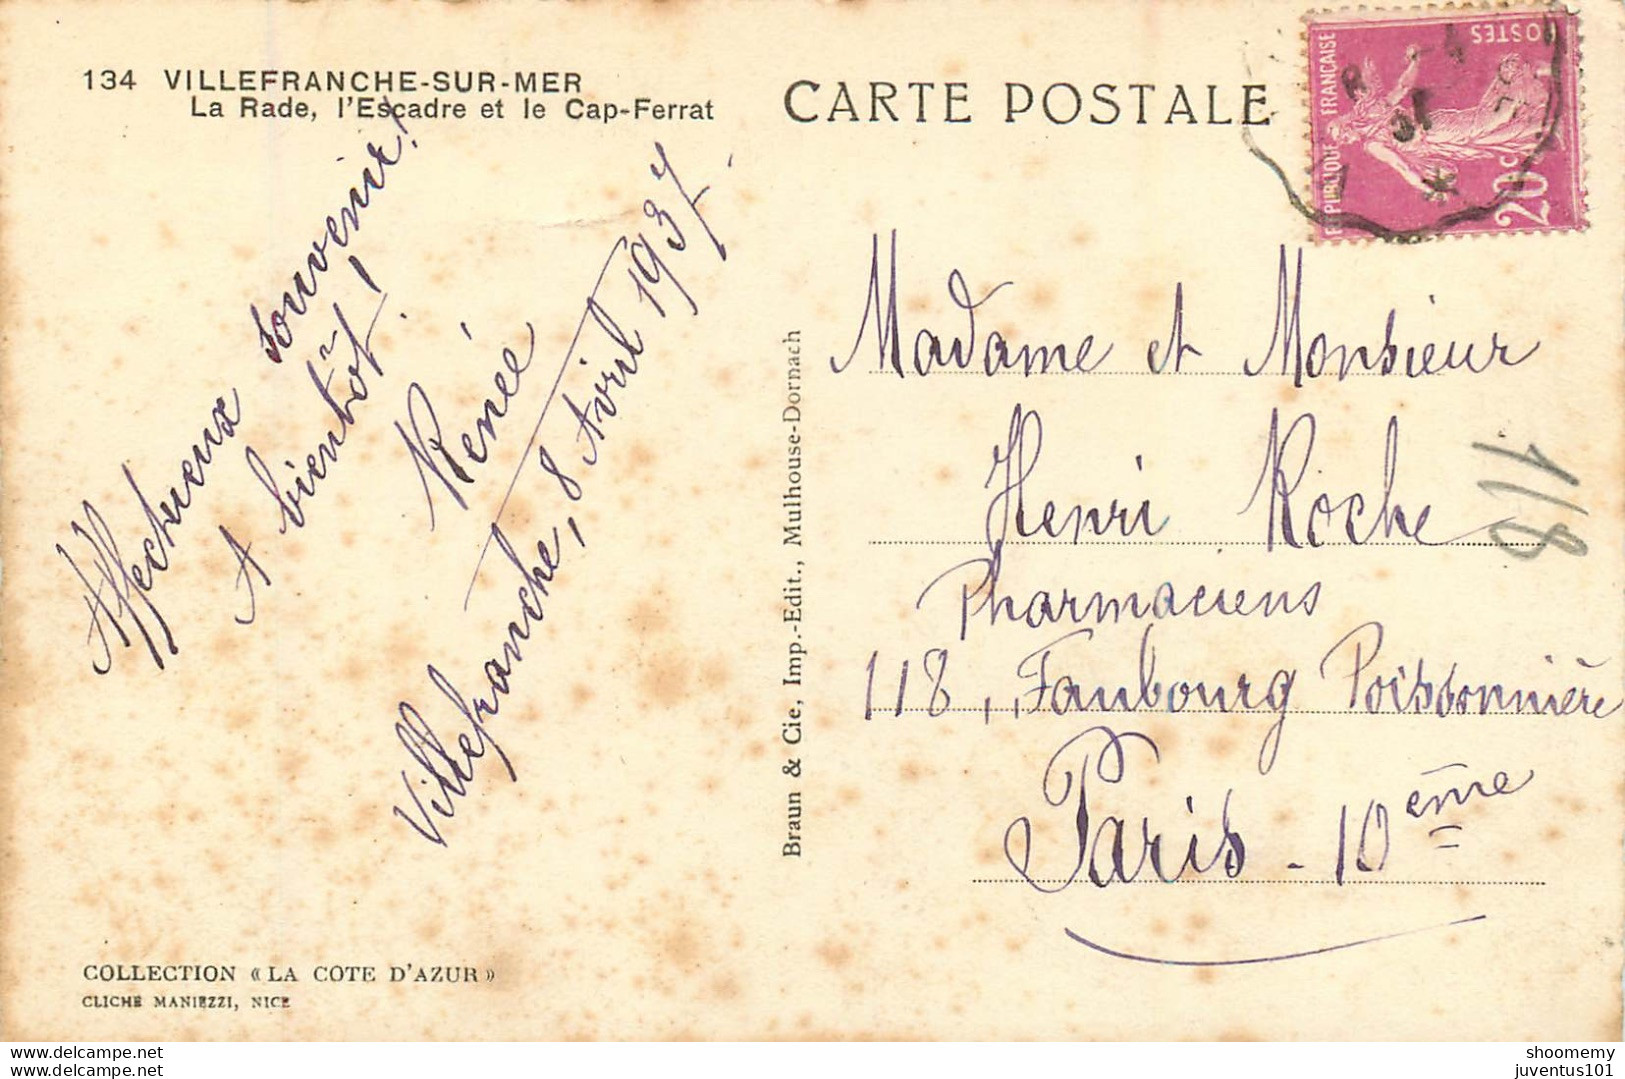 134 VILLEFRANCHE-SUR-MER
La Rade, l'Escadre et le Cap-Ferrat
CARTE POSTALE
RÉPUBLIQUE FRANÇAISE
POSTES
20c
Affectueux souvenir!
A bientôt!
Renée
Villefranche, 8 Avril 1937.
Braun & Cie, Imp.-Edit., Mulhouse-Dornach
Madame et Monsieur
Henri Roche
Pharmaciens
118, Faubourg Poissonnière
Paris - 10ème
118
COLLECTION «LA COTE D'AZUR»
CLICHÉ MANIEZZI, NICE
shoomemy
juventus101